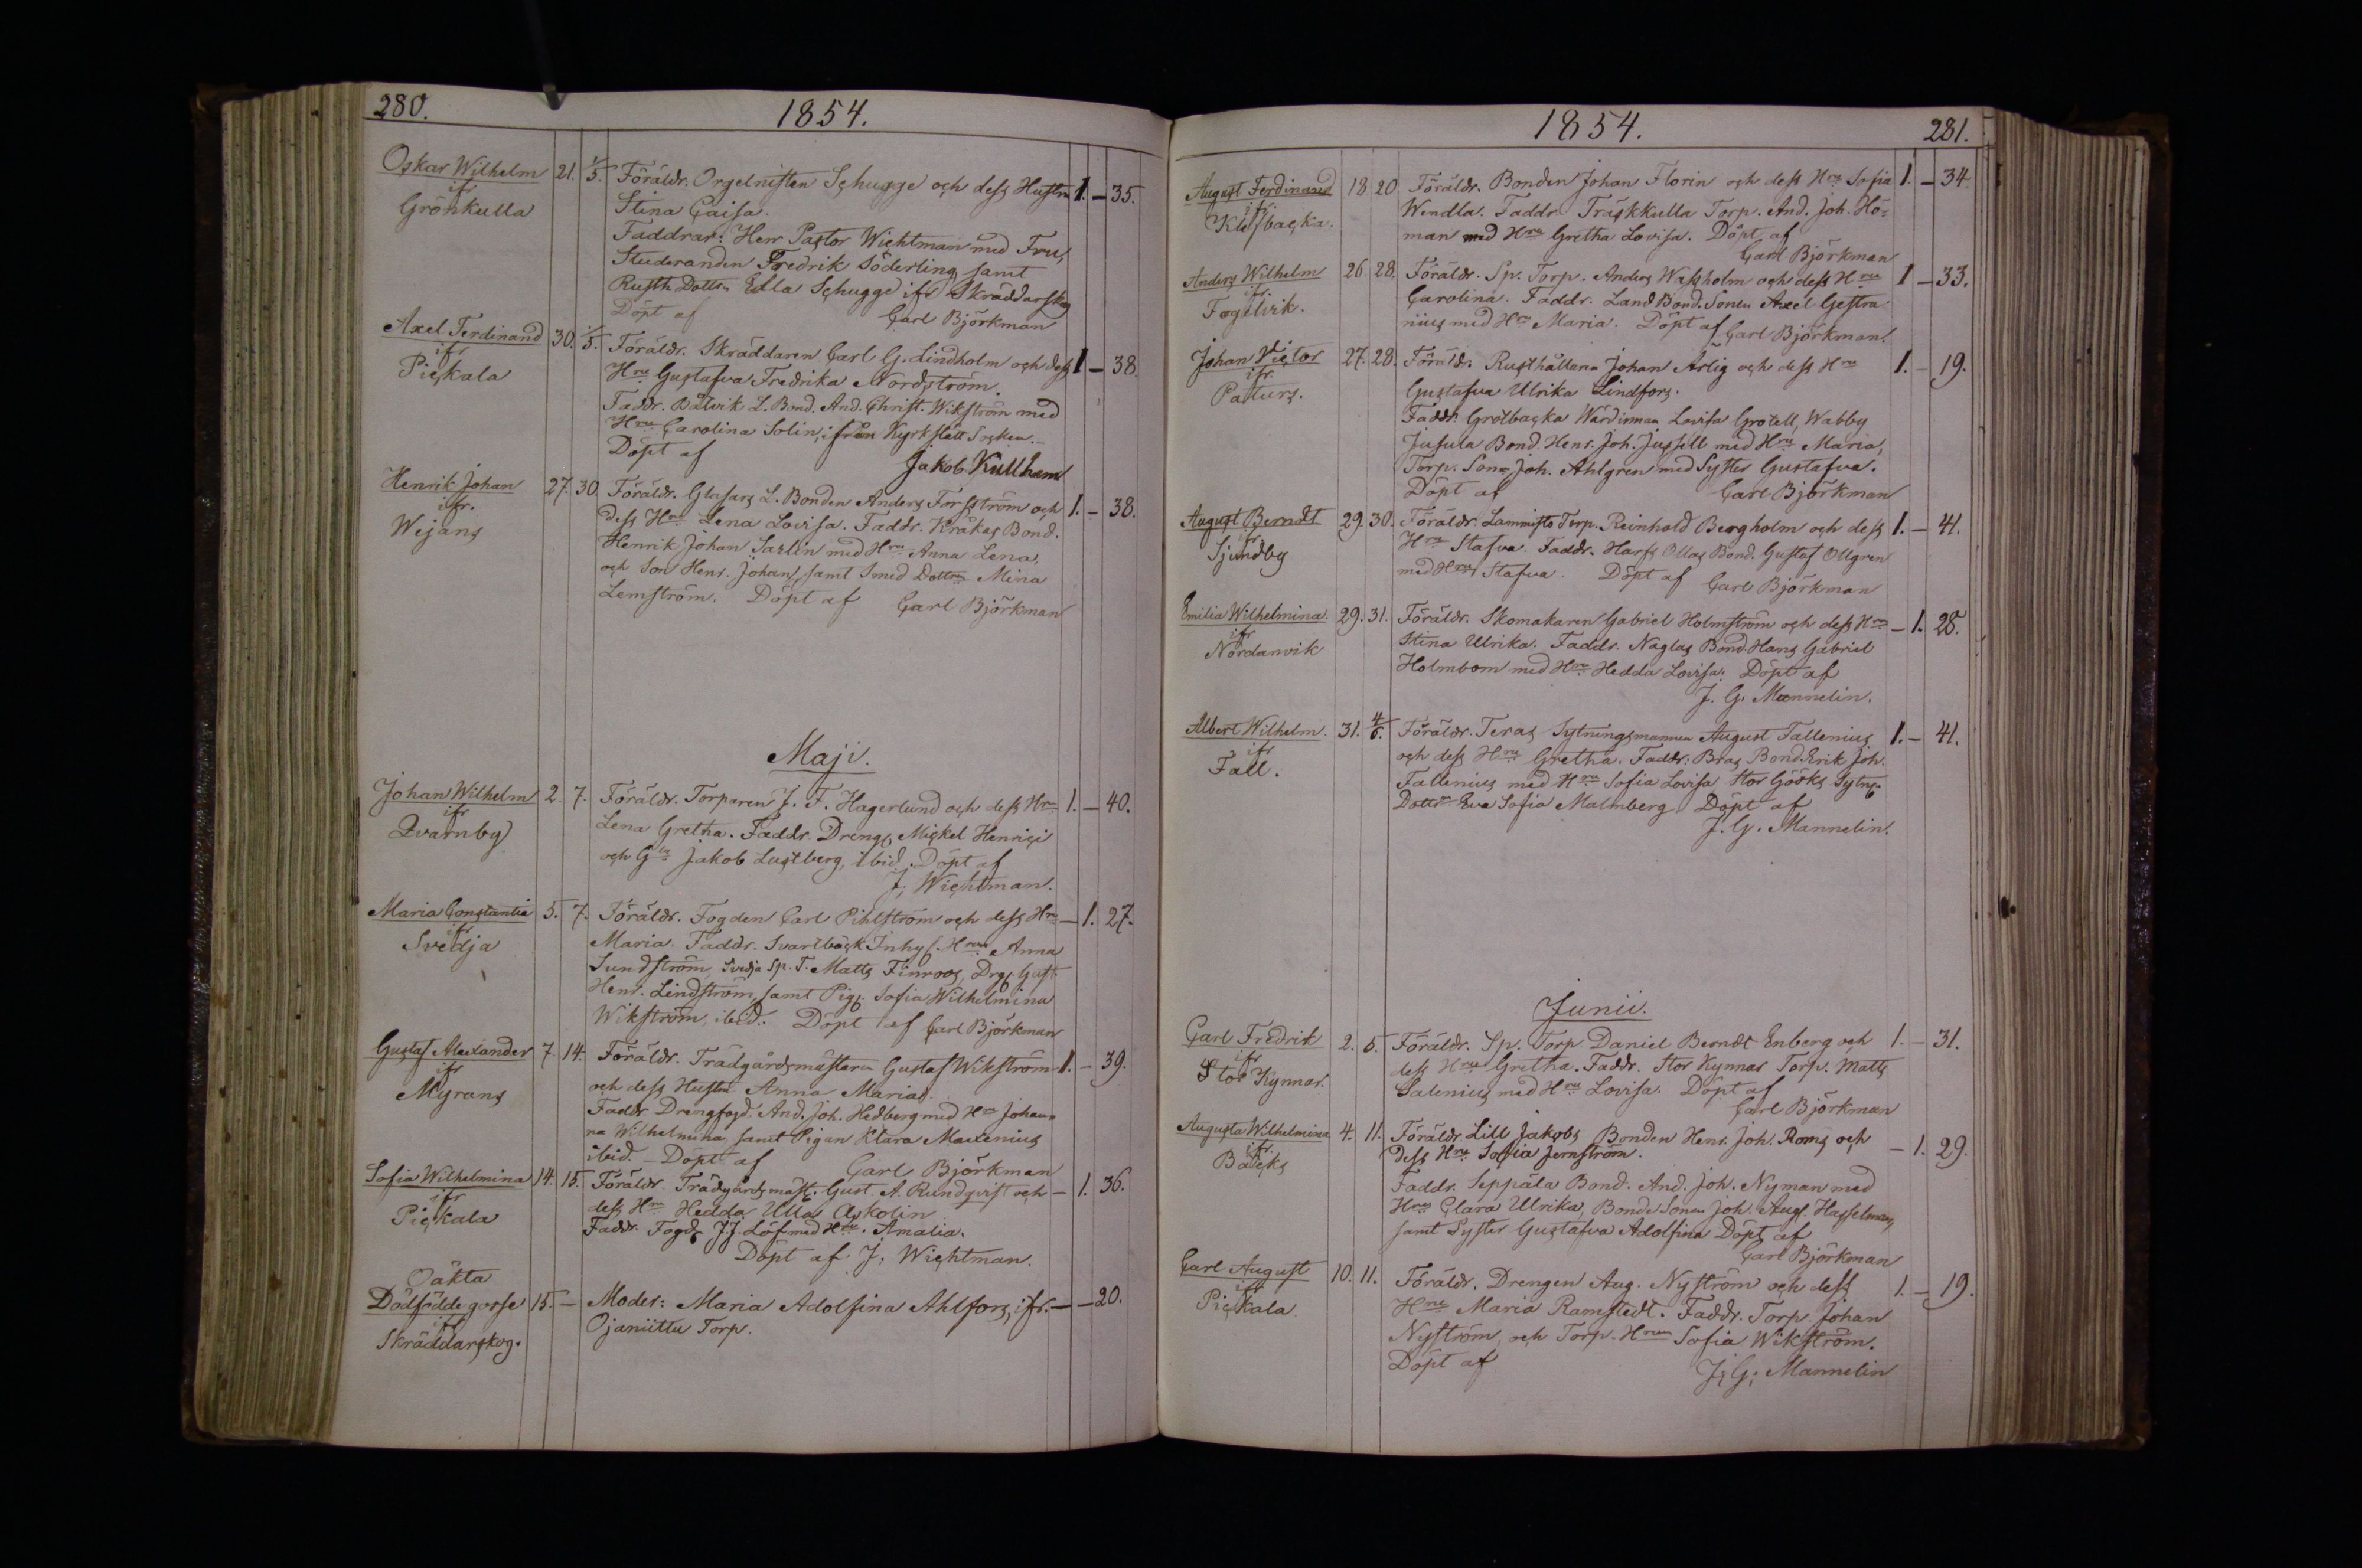 280.
1854.
Oskar Wilhelm 21. 1/5. Föräldr. Orgelnisten Schugge och dess Hustru 1. — 35.
ifr
Grönkulla
Stina Caisa.
Faddrar: Herr Pastor Wichtman med Fru,
Studeranden Fredrik Söderling samt
Rusth. Dottrn Ulla Schugge ifr Skräddarskog
Döpt af Carl Björkman
Axel Ferdinand 30. 1/5. Föräldr. Skräddaren Carl G. Lindholm och dess 1 — 38.
ifr
Pickala
Hru Gustafva Fredrika Nordström.
Faddr. Båtvik L. Bond. And. Christ. Wikström med
Hru Carolina Solin, ifrån Kyrkslätt Socken.
Döpt af Jakob Kullhem
Henrik Johan 27. 30. Föräldr. Glasars L. Bonden Anders Forsström och 1. — 38.
ifr.
Wejans
dess Hru Lena Lovisa. Faddr. Kråkas Bond.
Henrik Johan Sarlin med Hru Anna Lena,
och Son Henr. Johan, samt Smed Dottrn Mina
Lemström. Döpt af Carl Björkman
Maji.
Johan Wilhelm 2. 7. Föräldr. Torparen J. F. Hagerlund och dess Hru 1. — 40.
ifr
Qvarnby
Lena Gretha. Faddr. Dreng. Mickel Henrici
och Gla Jakob Lustberg, ibid. Döpt af
J. Wichtman.
Maria Constantia 5. 7. Föräldr. Fogden Carl Pihlström och dess Hru — 1. 27.
ifr
Svedja
Maria. Faddr. Svartbäck Inhys. Hrun Anna
Sundström, Svedja Sp. T. Matts Finroos, Drg. Gust.
Henr. Lindström, samt Pig. Sofia Wilhelmina
Wikström, ibid. Döpt af Carl Björkman
Gustaf Alexander 7. 14. Föräldr. Trädgårdsmästaren Gustaf Wikström 1. — 39.
ifr
Myrans
och dess Hustru Anna Maria.
Faddr. Drengfogd. And. Joh. Hedberg med Hru Johan-
na Wilhelmina, samt Pigan Klara Maxenius
ibid. — Döpt af Carl Björkman
Sofia Wilhelmina 14. 15. Föräldr. Trädgårdsmäst. Gust. A. Rundqvist och — 1. 36.
ifr
Pickala
dess Hru Hedda Ulla Askolin
Faddr. Fogd. J. J. Löf med Hru. Amalia.
Döpt af J. Wichtman.
Oäkta
Dödfödde gosse 15. — Moder: Maria Adolfina Ahlfors, ifr. — — 20.
ifr
Skräddarskog.
Ojaniittu Torp.
1854.
281.
August Ferdinand 18 20 Föräldr. Bonden Johan Florin och dess Hru Sofia 1. — 34.
ifr.
Klefbacka.
Wendla. Faddr. Träskkulla Torp. And. Joh. Hö-
man med Hru Gretha Lovisa. Döpt af
Carl Björkman
Anders Wilhelm 26. 28. Föräldr. Sp. Torp. Anders Wassholm och dess Hru 1 — 33.
ifr.
Fogelvik.
Carolina. Faddr. Land Bond. Sonen Axel Gestra
nius med Hru Maria. Döpt af Carl Björkman.
Johan Victor 27. 28. Föräldr. Rusthållaren Johan Ärlig och dess Hru 1. — 19.
ifr.
Paturs.
Gustafva Ulrika Lindfors.
Faddr. Grotbacka Wärdinnan Lovisa Grotell, Wabby
Jusula Bond. Henr. Joh. Jussell med Hru Maria,
Torp. Son Joh. Ahlgren med Syster Gustafva.
Döpt af Carl Björkman
August Berndt 29. 30. Föräldr. Lammisto Torp. Reinhold Bergholm och dess 1. — 41.
ifr
Sjundby
Hru Stafva. Faddr. Harfs Ollas Bond. Gustaf Ollgren
med Hru Stafva. Döpt af Carl Björkman
Emilia Wilhelmina. 29. 31. Föräldr. Skomakaren Gabriel Holmström och dess Hru — 1. 28.
ifr
Nordanvik
Stina Ulrika. Faddr. Naglas Bond. Hans Gabriel
Holmbom med Hru Hedda Lovisa. Döpt af
J. G. Mannelin.
Albert Wilhelm. 31. 4/6. Föräldr. Teras Sytningsmannen August Tallenius 1. — 41.
ifr
Fall.
och dess Hru Gretha. Faddr: Bras Bond. Erik Joh.
Tallenius med Hru Sofia Lovisa Stor Gööks Sytng.
Dottrn Eva Sofia Malmberg Döpt af
J. G. Mannelin.
Junii.
Carl Fredrik 2. 5. Föräldr. Sp. Torp Daniel Berndt Enberg och 1. — 31.
ifr
Stor Kynnar.
dess Hru Gretha. Faddr. Stor Kynnas Torp. Matts
Salenius med Hru Lovisa. Döpt af
Carl Björkman
Augusta Wilhelmina 4. 11. Föräldr. Lill Jakobs Bonden Henr. Joh. Roms och — 1. 29.
ifr.
Bäcks
dess Hru Sofia Jernström.
Faddr. Seppäla Bond. And. Joh. Nyman med
Hru Clara Ulrika, Bonde Sonen Joh. Aug. Hasselman,
samt Syster Gustafva Adolfina Döpt af
Carl Björkman
Carl August 10. 11. Föräldr. Drengen Aug. Nyström och dess 1. — 19.
ifr
Pickala
Hru Maria Ramstedt. Faddr. Torp Johan
Nyström, och Torp. Hrun Sofia Wikström.
Döpt af J. G. Mannelin